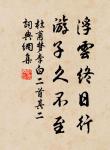 浮雲終日行
游子久不至
杜甫夢李白二首其二
詞典網集